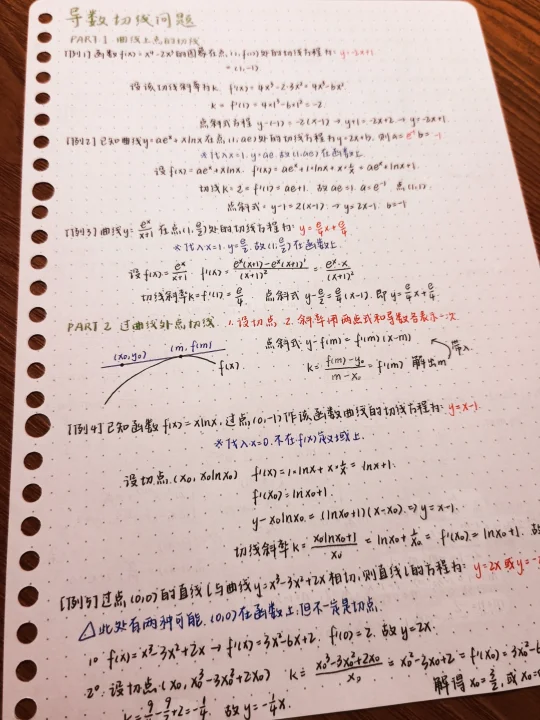 导数切线问题
PART 1 曲线上点的切线
[例1] 函数 f(x)=x⁴-2x³的图象在点(1, f(1))处的切线方程为: y=-2x+1
=(1,-1)
设该切线斜率为k. f'(x)=4x³-2·3x²=4x³-6x².
k=f'(1)=4×1³-6×1²=-2.
点斜式方程 y-(-1)=-2(x-1) → y+1=-2x+2 → y=-2x+1.
[例2] 已知曲线y=aeˣ+xlnx在点(1,ae)处的切线方程为y=2x+b, 则a=e⁻¹ b=-1
*代入x=1. y=ae. 故(1,ae)在函数上.
设f(x)=aeˣ+xlnx. f'(x)=aeˣ+1×lnx+x·1/x=aeˣ+lnx+1.
切线k=2=f'(1)=ae+1. 故ae=1. a=e⁻¹ 点(1,1).
点斜式=y-1=2(x-1). → y=2x-1. b=-1
[例3] 曲线y=eˣ/(x+1)在点(1,e/2)处的切线方程为: y=e/4x+e/4
*代入x=1. y=e/2. 故(1,e/2)在函数上.
设f(x)=eˣ/(x+1). f'(x)=(eˣ(x+1)-eˣ(x+1)')/(x+1)²=eˣ·x/(x+1)²
切线斜率k=f'(1)=e/4. 点斜式y-e/2=e/4(x-1). 即y=e/4x+e/4.
PART 2 过曲线外点切线. 1.设切点 2.斜率用两点式和导数各表示一次
(x₀,y₀) (m, f(m)) f(x)
点斜式: y-f(m)=f'(m)(x-m)
k=(f(m)-y₀)/(m-x₀)=f'(m) 解出m 带入
[例4] 已知函数f(x)=xlnx, 过点(0,-1)作该函数曲线的切线方程为: y=x-1.
*代入x=0. 不在f(x)定义域上.
设切点(x₀, x₀lnx₀) f'(x)=1×lnx+x·1/x=lnx+1.
f'(x₀)=lnx₀+1.
y-x₀lnx₀=(lnx₀+1)(x-x₀) ⇒ y=x-1.
切线斜率k=(x₀lnx₀+1)/x₀=lnx₀+1/x₀=f'(x₀)=lnx₀+1. 故
[例5] 过点(0,0)的直线l与曲线y=x³-3x²+2x相切, 则直线l的方程为: y=2x或y=-
△此处有两种可能. (0,0)在函数上, 但不一定是切点.
1° f(x)=x³-3x²+2x → f'(x)=3x²-6x+2. f'(0)=2. 故y=2x.
2° 设切点(x₀, x₀³-3x₀²+2x₀) k=(x₀³-3x₀²+2x₀)/x₀=x₀²-3x₀+2=f'(x₀)=3x₀²-6
解得x₀=3/2, 或x₀=
k=9/4-9/2+2=-1/4. 故y=-1/4x.